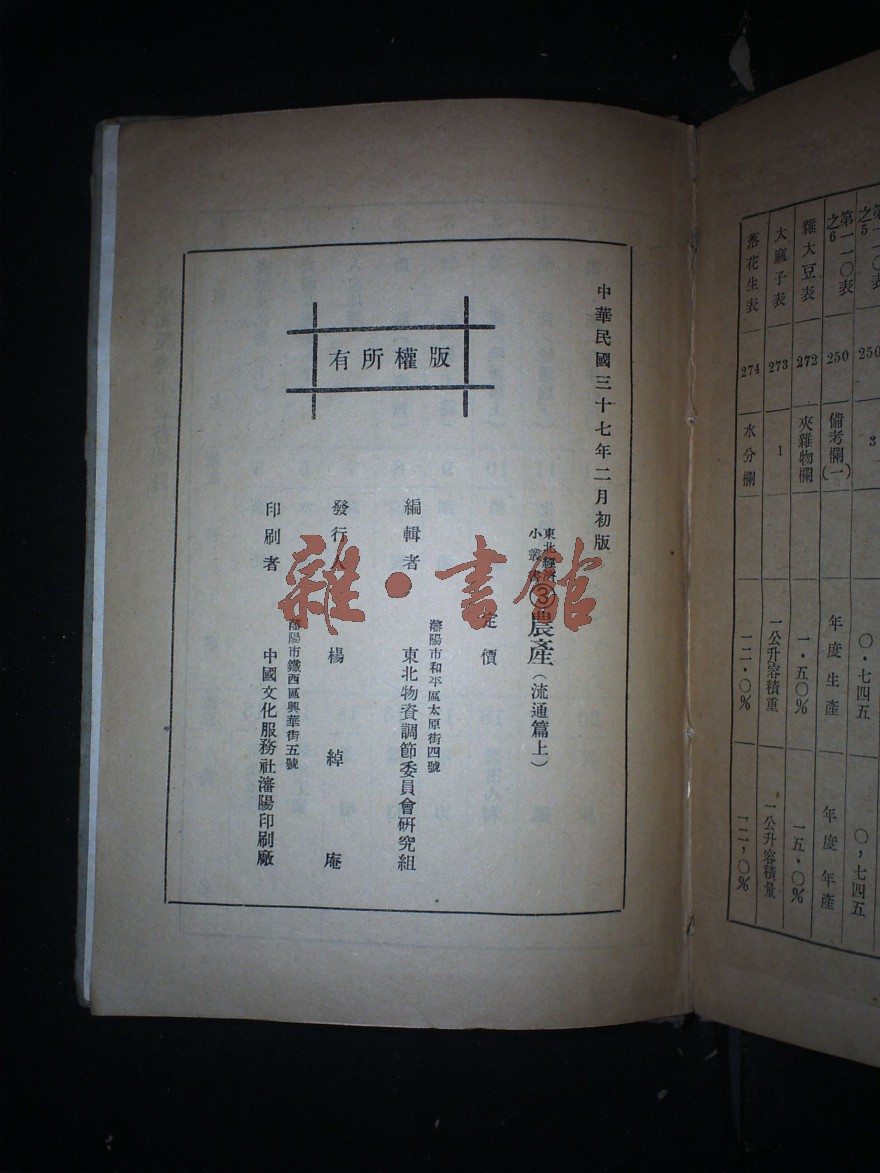 第一一〇表之5
250
3
〇・七四五
〇,七四五
第一一〇表之6
250
備考欄(一)
年度生產
年度年產
雜大豆表
272
夾雜物欄
一・五〇%
一五・〇%
大麻子表
273
1
一公升容積重
一公升容積量
落花生表
274
水分欄
一二・〇%
一二,〇%
中華民國三十七年二月初版
東北經濟小叢書③農產(流通篇上)
定價
版權所有
編輯者
瀋陽市和平區太原街四號
東北物資調節委員會研究組
發行人 楊綽庵
印刷者
瀋陽市鐵西區興華街五號
中國文化服務社瀋陽印刷廠
雜・書館